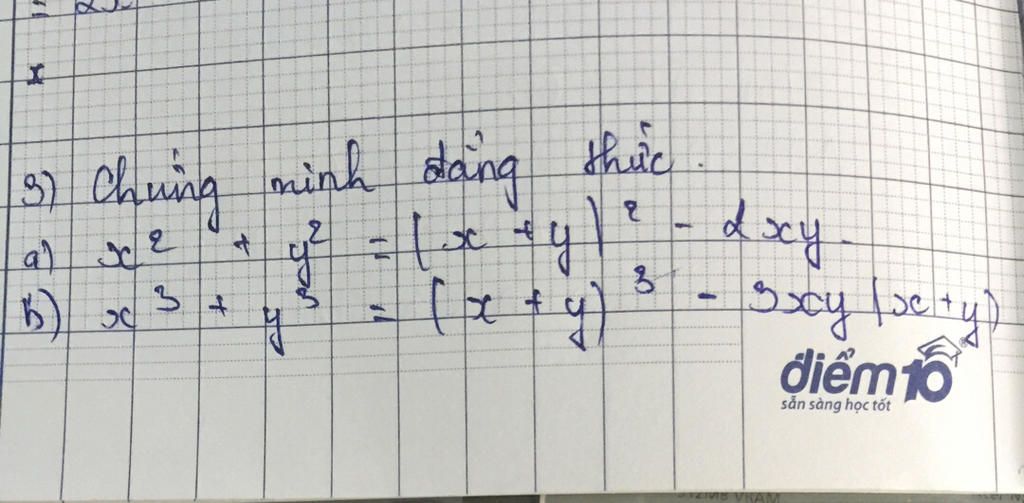 x
3) Chứng minh đẳng thức.
a) x² + y² = (x + y)² - 2xy.
b) x³ + y³ = (x + y)³ - 3xy (x+y)
điểm10
sẵn sàng học tốt
512MB VRAM